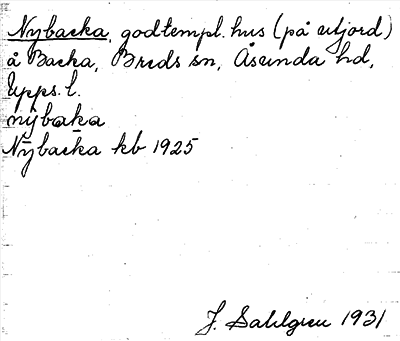 Nybacka, godtempl. hus (på utjord)
å Backa, Breds sn, Åsunda hd,
Upps. l.
nỳbaka
Nybacka kb 1925
J. Sahlgren 1931